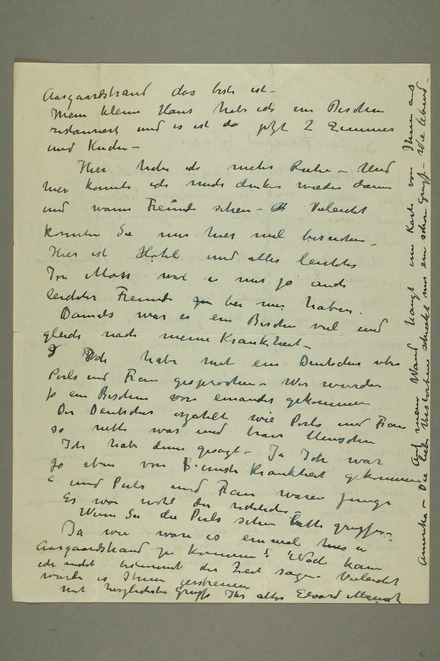 Aasgaardstrand das beste ist –
Mein kleine Haus habe ich ein Bischen
restauriert und es ist da jetzt 2 Zimmer
und Küche –
Hier habe ich mehr Ruhe – Und
hier konnte ich mich denken wieder dann
und wann Freunde sehen – Vieleicht
konnten Sie mir hier mal besuchen –
Hier ist Hotel und alles leichter
In Moss war es mir ja auch
leichter Freunde bei mir haben.
Damals war es ein Bischen viel und
gleich nach meine Krankheit –
Ich habe mit ein Deutscher über
Perls und Frau gesprochen – Wir wurden
ja ein Bischen von einander gekommen
Der Deutscher erzählte wie Perls und Frau
so nette war und brave Menschen
Ich habe denn gesagt – Ja Ich war
ja eben von Krankheit gekommen
und Perls und Frau waren junge
Es war wohl das richtige –
Wenn Sie die Perls sehen bitte grüssen –
Ja wie wäre es einmal hier in
Aasgaardstrand zu kommen? Noch kann
ich nicht bestimmt die Zeit sagen – Vieleicht
würde es Ihnen zerstreuen
Mit herzlichste Grüsse Ihr alter Edvard Munch
Auf mein Wand hängt ein Karte von Ihnen aus
Amerika – Die liebe schickt uns ein schön gruss –